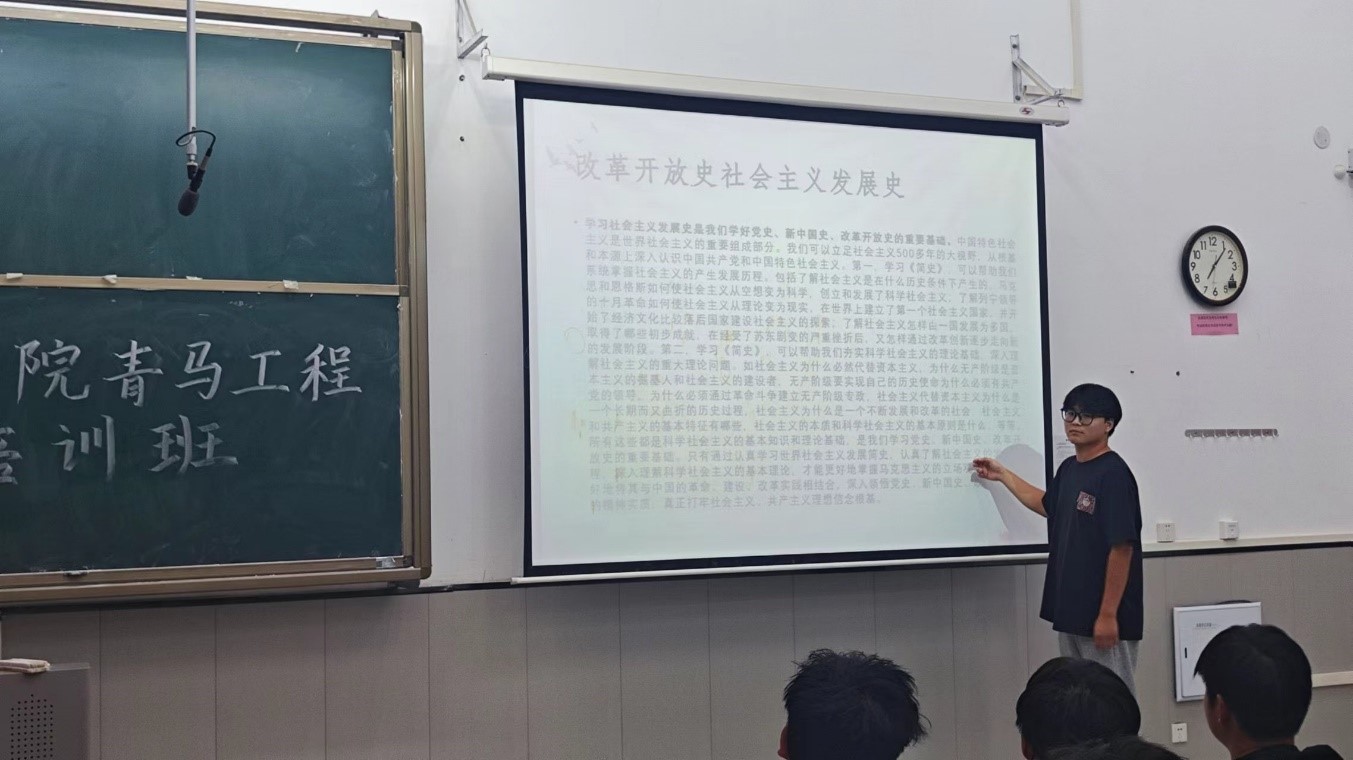 院青马工程
训班
改革开放史社会主义发展史
学习社会主义发展史是我们学好党史、新中国史、改革开放史的重要基础。中国特色社会
主义是世界社会主义的重要组成部分。我们可以立足社会主义500多年的大视野，从根基
和本源上深入认识中国共产党和中国特色社会主义。第一，学习《简史》，可以帮助我们
系统掌握社会主义的产生发展历程，包括了解社会主义是在什么历史条件下产生的，马克
思和恩格斯如何使社会主义从空想变为科学，创立和发展了科学社会主义；了解列宁领导
的十月革命如何使社会主义从理论变为现实，在世界上建立了第一个社会主义国家，并开
始了经济文化比较落后国家建设社会主义的探索；了解社会主义怎样由一国发展为多国，
取得了哪些初步成就，在经受了苏东剧变的严重挫折后，又怎样通过改革创新逐步走向新
的发展阶段。第二，学习《简史》，可以帮助我们夯实科学社会主义的理论基础，深入理
解社会主义的重大理论问题。如社会主义为什么必然代替资本主义，为什么无产阶级是资
本主义的掘墓人和社会主义的建设者，无产阶级要实现自己的历史使命为什么必须有共产
党的领导，为什么必须通过革命斗争建立无产阶级专政，社会主义代替资本主义为什么是
一个长期而又曲折的历史过程，社会主义为什么是一个不断发展和改革的社会，社会主义
和共产主义的基本特征有哪些，社会主义的本质和科学社会主义的基本原则是什么，等等。
所有这些都是科学社会主义的基本知识和理论基础，是我们学习党史、新中国史、改革开
放史的重要基础。只有通过认真学习世界社会主义发展简史，认真了解社会主义
程，深入理解科学社会主义的基本理论，才能更好地掌握马克思主义的立场
好地将其与中国的革命、建设、改革实践相结合，深入领悟党史、新中国史、
的精神实质，真正打牢社会主义、共产主义理想信念根基。
12
1
2
3
4
5
6
7
8
9
10
11